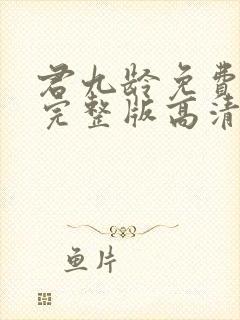 君九龄免費
完整版高清
鱼片